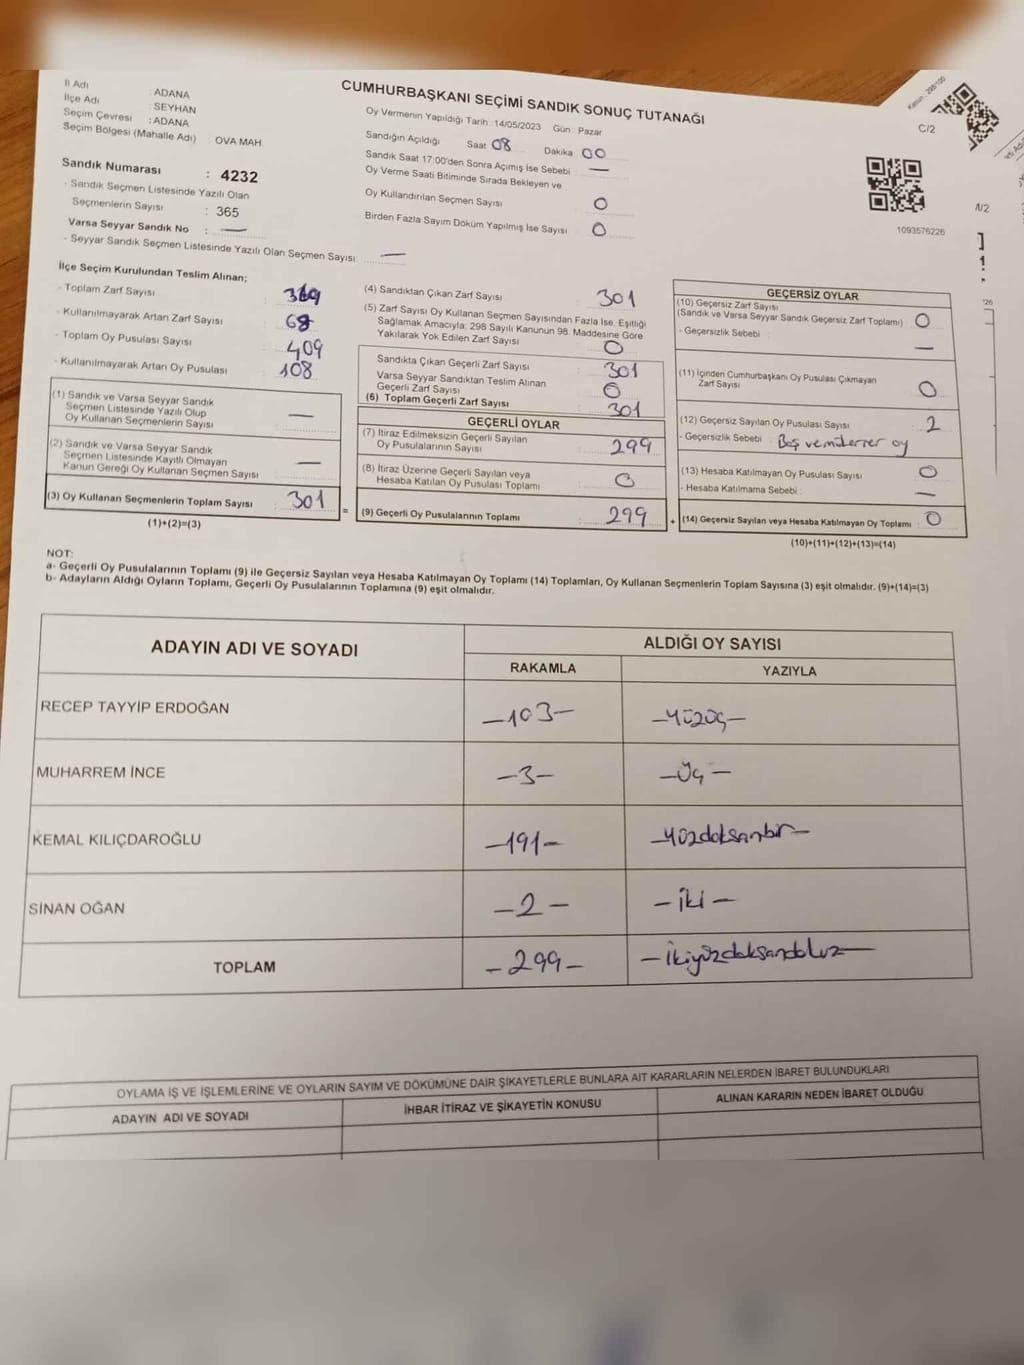 İl Adı : ADANA
İlçe Adı : SEYHAN
Seçim Çevresi : ADANA
Seçim Bölgesi (Mahalle Adı) : OVA MAH.
CUMHURBAŞKANI SEÇİMİ SANDIK SONUÇ TUTANAĞI
C/2
Oy Vermenin Yapıldığı Tarih : 14/05/2023 Gün : Pazar
Sandığın Açıldığı Saat 08 Dakika 00
Sandık Saat 17:00'den Sonra Açımış İse Sebebi : —
Oy Verme Saati Bitiminde Sırada Bekleyen ve
Oy Kullandırılan Seçmen Sayısı 0
Birden Fazla Sayım Döküm Yapılmış İse Sayısı : 0
1093576226
Sandık Numarası : 4232
- Sandık Seçmen Listesinde Yazılı Olan
Seçmenlerin Sayısı : 365
Varsa Seyyar Sandık No : —
- Seyyar Sandık Seçmen Listesinde Yazılı Olan Seçmen Sayısı: —
İlçe Seçim Kurulundan Teslim Alınan;
- Toplam Zarf Sayısı : 369
- Kullanılmayarak Artan Zarf Sayısı : 68
- Toplam Oy Pusulası Sayısı : 409
- Kullanılmayarak Artan Oy Pusulası : 108
(1) Sandık ve Varsa Seyyar Sandık
Seçmen Listesinde Yazılı Olup
Oy Kullanan Seçmenlerin Sayısı : —
(2) Sandık ve Varsa Seyyar Sandık
Seçmen Listesinde Kayıtlı Olmayan
Kanun Gereği Oy Kullanan Seçmen Sayısı : —
(3) Oy Kullanan Seçmenlerin Toplam Sayısı : 301
(1)+(2)=(3)
=
(4) Sandıktan Çıkan Zarf Sayısı : 301
(5) Zarf Sayısı Oy Kullanan Seçmen Sayısından Fazla İse, Eşitliği
Sağlamak Amacıyla; 298 Sayılı Kanunun 98. Maddesine Göre
Yakılarak Yok Edilen Zarf Sayısı : 0
Sandıkta Çıkan Geçerli Zarf Sayısı : 301
Varsa Seyyar Sandıktan Teslim Alınan
Geçerli Zarf Sayısı : 0
(6) Toplam Geçerli Zarf Sayısı : 301
GEÇERLİ OYLAR
(7) İtiraz Edilmeksizin Geçerli Sayılan
Oy Pusulalarının Sayısı : 299
(8) İtiraz Üzerine Geçerli Sayılan veya
Hesaba Katılan Oy Pusulası Toplamı : 0
(9) Geçerli Oy Pusulalarının Toplamı : 299
+
GEÇERSİZ OYLAR
(10) Geçersiz Zarf Sayısı
(Sandık ve Varsa Seyyar Sandık Geçersiz Zarf Toplamı) : 0
- Geçersizlik Sebebi : —
(11) İçinden Cumhurbaşkanı Oy Pusulası Çıkmayan
Zarf Sayısı : 0
(12) Geçersiz Sayılan Oy Pusulası Sayısı : 2
- Geçersizlik Sebebi : Boş ve mükerrer oy
(13) Hesaba Katılmayan Oy Pusulası Sayısı : 0
- Hesaba Katılmama Sebebi : —
(14) Geçersiz Sayılan veya Hesaba Katılmayan Oy Toplamı : 0
(10)+(11)+(12)+(13)=(14)
NOT:
a- Geçerli Oy Pusulalarının Toplamı (9) ile Geçersiz Sayılan veya Hesaba Katılmayan Oy Toplamı (14) Toplamları, Oy Kullanan Seçmenlerin Toplam Sayısına (3) eşit olmalıdır. (9)+(14)=(3)
b- Adayların Aldığı Oyların Toplamı, Geçerli Oy Pusulalarının Toplamına (9) eşit olmalıdır.
ADAYIN ADI VE SOYADI ALDIĞI OY SAYISI
RAKAMLA YAZIYLA
RECEP TAYYİP ERDOĞAN -103- -Yüzüç-
MUHARREM İNCE -3- -Üç-
KEMAL KILIÇDAROĞLU -191- -Yüzdoksanbir-
SİNAN OĞAN -2- -İki-
TOPLAM -299- -İkiyüzdoksandokuz-
OYLAMA İŞ VE İŞLEMLERİNE VE OYLARIN SAYIM VE DÖKÜMÜNE DAİR ŞİKAYETLERLE BUNLARA AİT KARARLARIN NELERDEN İBARET BULUNDUKLARI
ADAYIN ADI VE SOYADI İHBAR İTİRAZ VE ŞİKAYETİN KONUSU ALINAN KARARIN NEDEN İBARET OLDUĞU